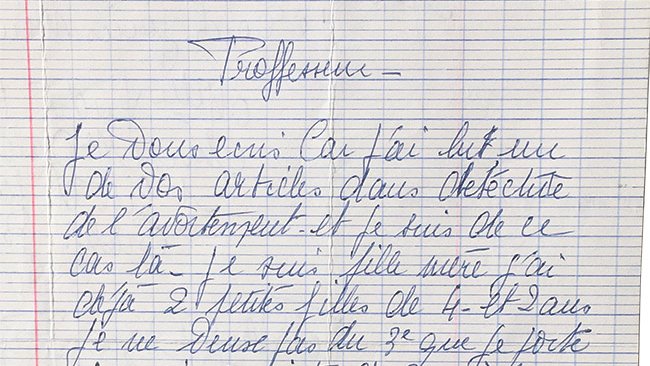 Proffesseur –
Je vous ecris Car j'ai lut un
de vos articles dans detéctive
de l'avortement - et je suis de ce
cas là - Je suis fille mère j'ai
dèjà 2 petites filles de 4 - et 2 ans
Je ne veux pas du 3e que je porte